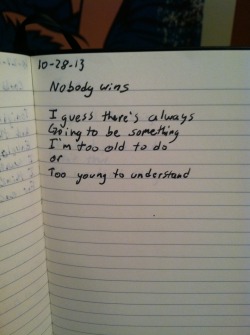 10-28-13
Nobody wins
I guess there's always
Going to be something
I'm too old to do
or
Too young to understand